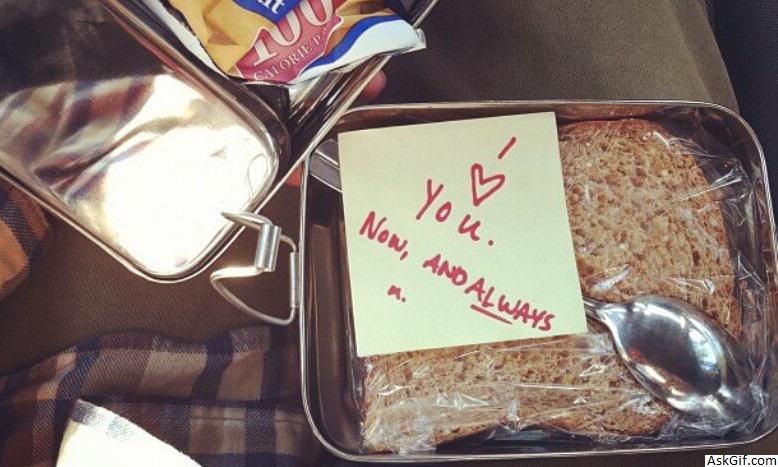 100
CALORIE
I ♡
YOU.
NOW, AND ALWAYS
n.
AskGif.com